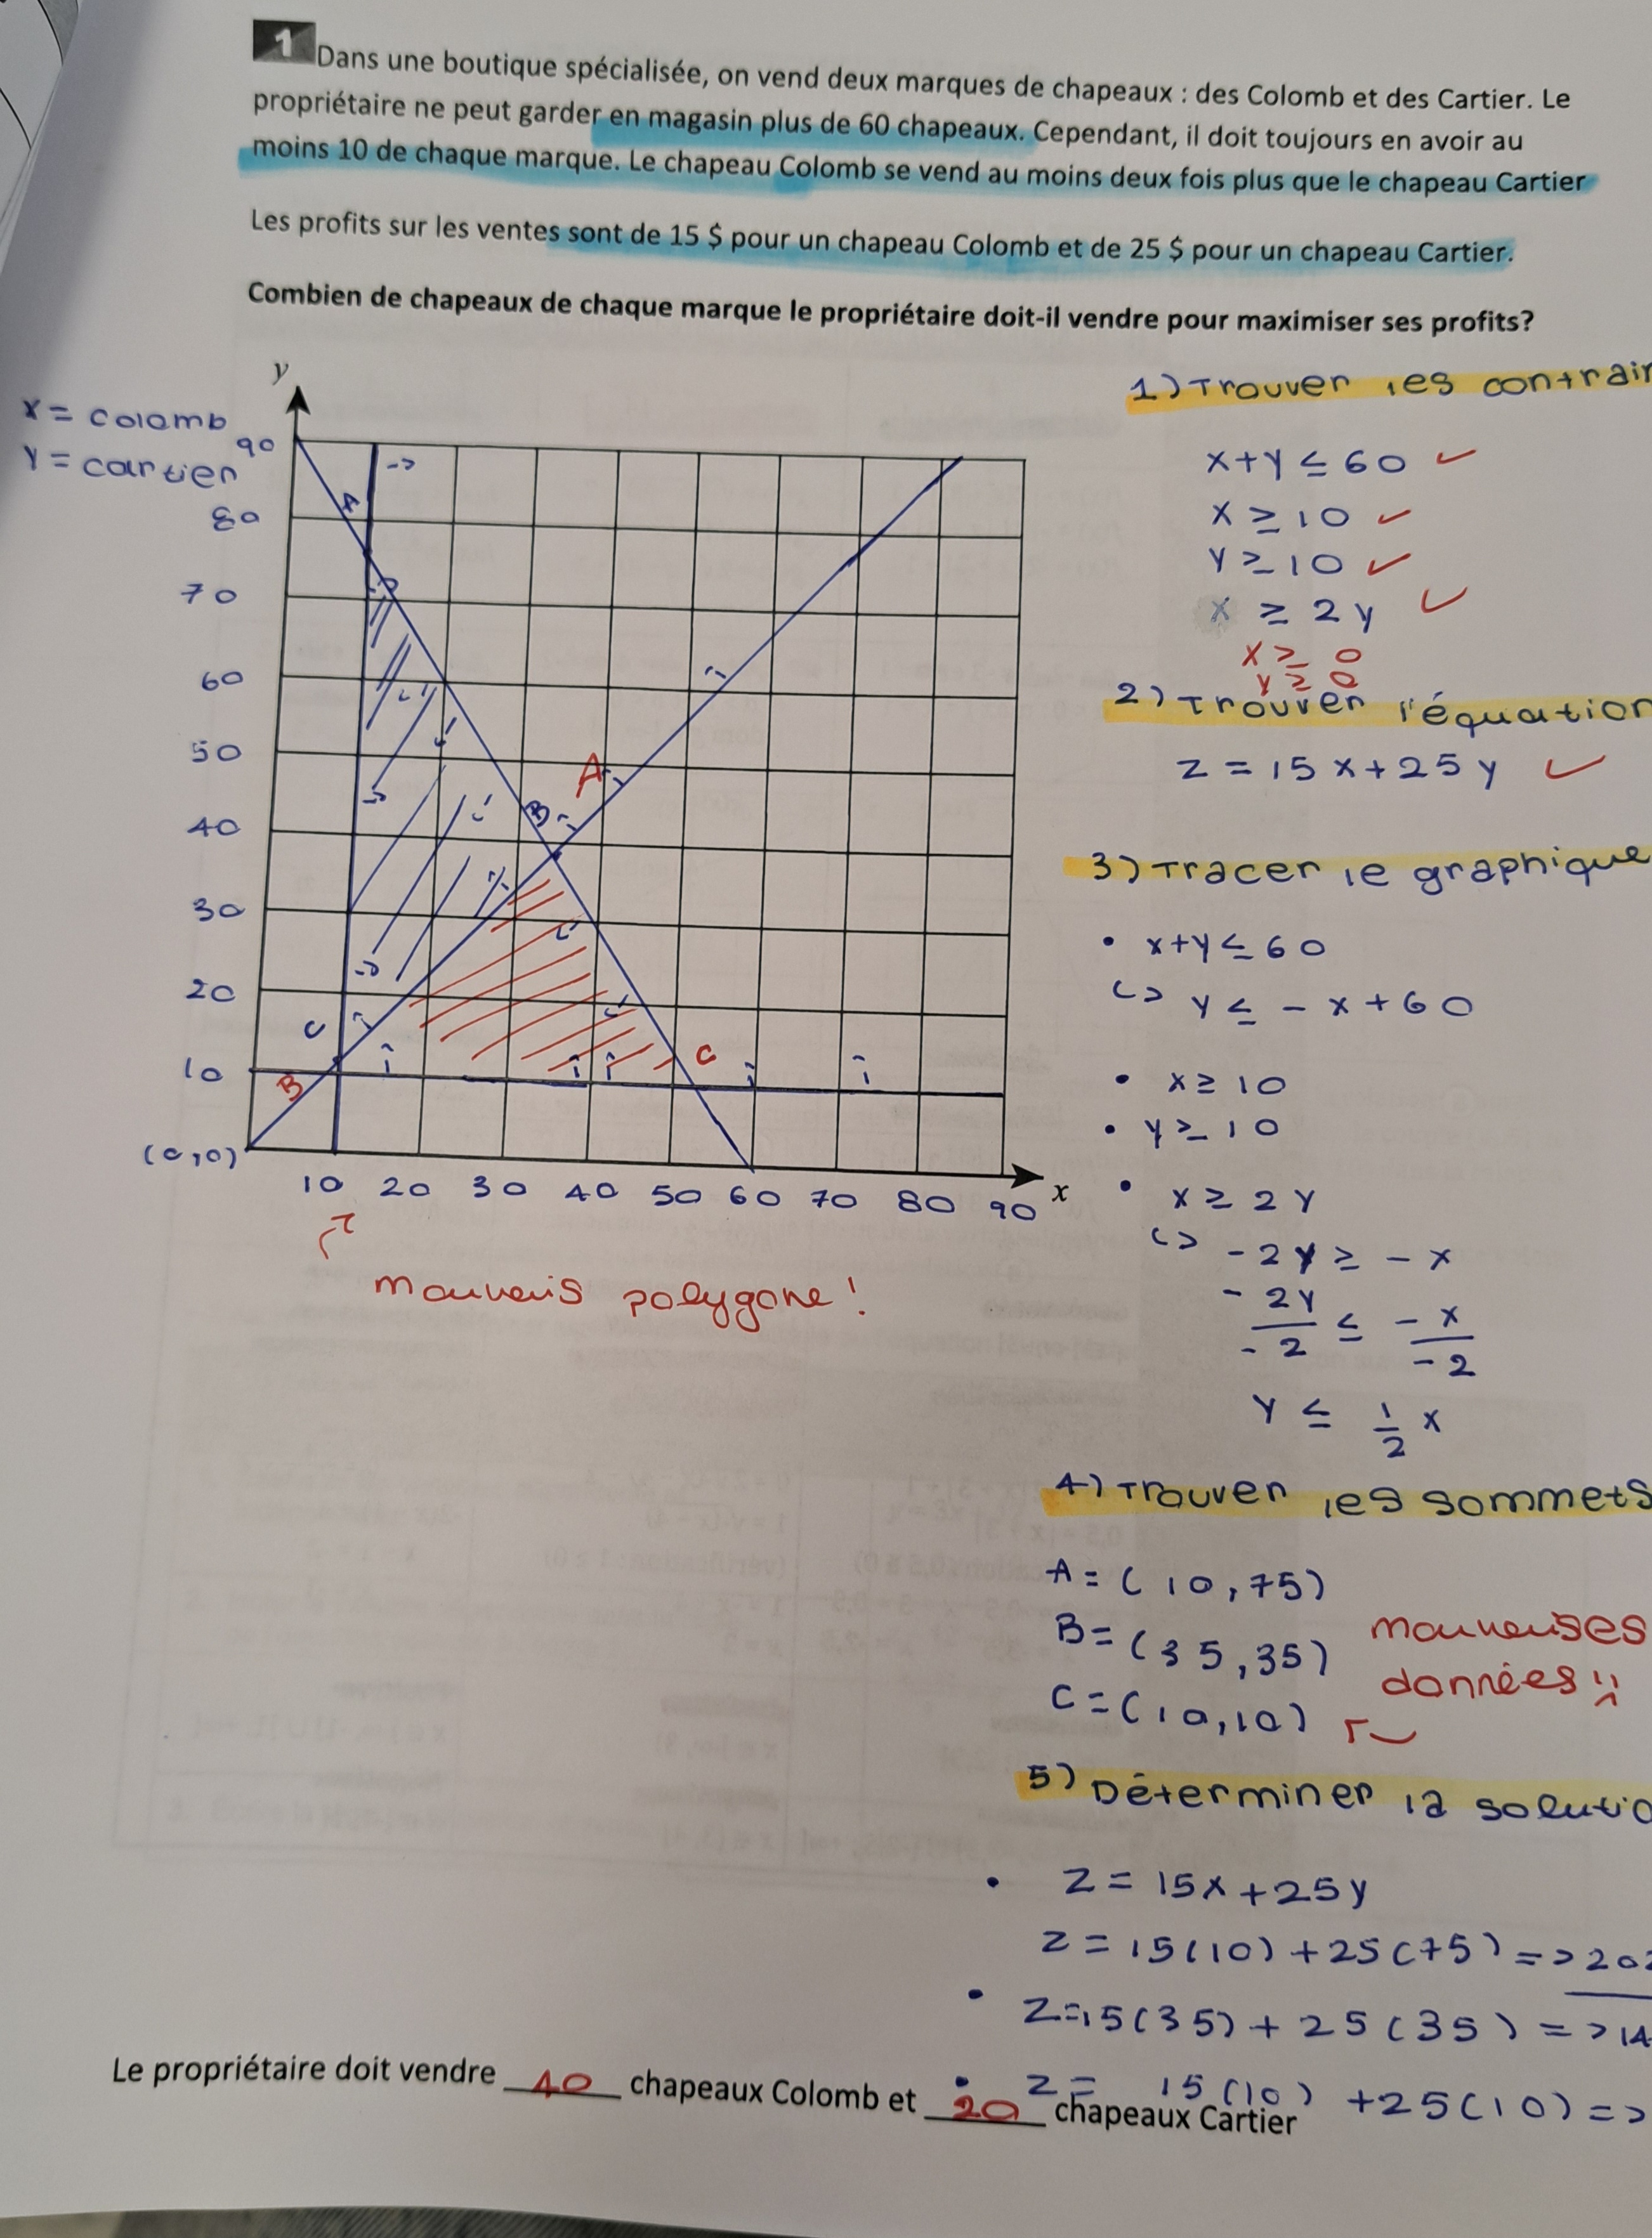 1 Dans une boutique spécialisée, on vend deux marques de chapeaux : des Colomb et des Cartier. Le
propriétaire ne peut garder en magasin plus de 60 chapeaux. Cependant, il doit toujours en avoir au
moins 10 de chaque marque. Le chapeau Colomb se vend au moins deux fois plus que le chapeau Cartier
Les profits sur les ventes sont de 15 $ pour un chapeau Colomb et de 25 $ pour un chapeau Cartier.
Combien de chapeaux de chaque marque le propriétaire doit-il vendre pour maximiser ses profits?
x = colomb
y = cartier
y
90
80
70
60
50
40
30
20
10
(0,0)
10 20 30 40 50 60 70 80 90 x
A
B
C
A
B
C
mauvais polygone!
1) Trouver les contrain
x+y ≤ 60
x ≥ 10
y ≥ 10
x ≥ 2y
x ≥ 0
y ≥ 0
2) Trouver l'équation
z = 15x+25y
3) Tracer le graphique
• x+y ≤ 60
<> y ≤ -x+60
• x ≥ 10
• y ≥ 10
• x ≥ 2y
<> -2y ≥ -x
-2y/-2 ≤ -x/-2
y ≤ 1/2 x
4) Trouver les sommets
A = (10,75)
B = (35,35)
C = (10,10)
mauvaises
données
5) Déterminer la solutio
• z = 15x+25y
z = 15(10)+25(75) => 202
• z=15(35)+25(35) => 14
• z= 15(10) +25(10) =>
Le propriétaire doit vendre 40 chapeaux Colomb et 20 chapeaux Cartier